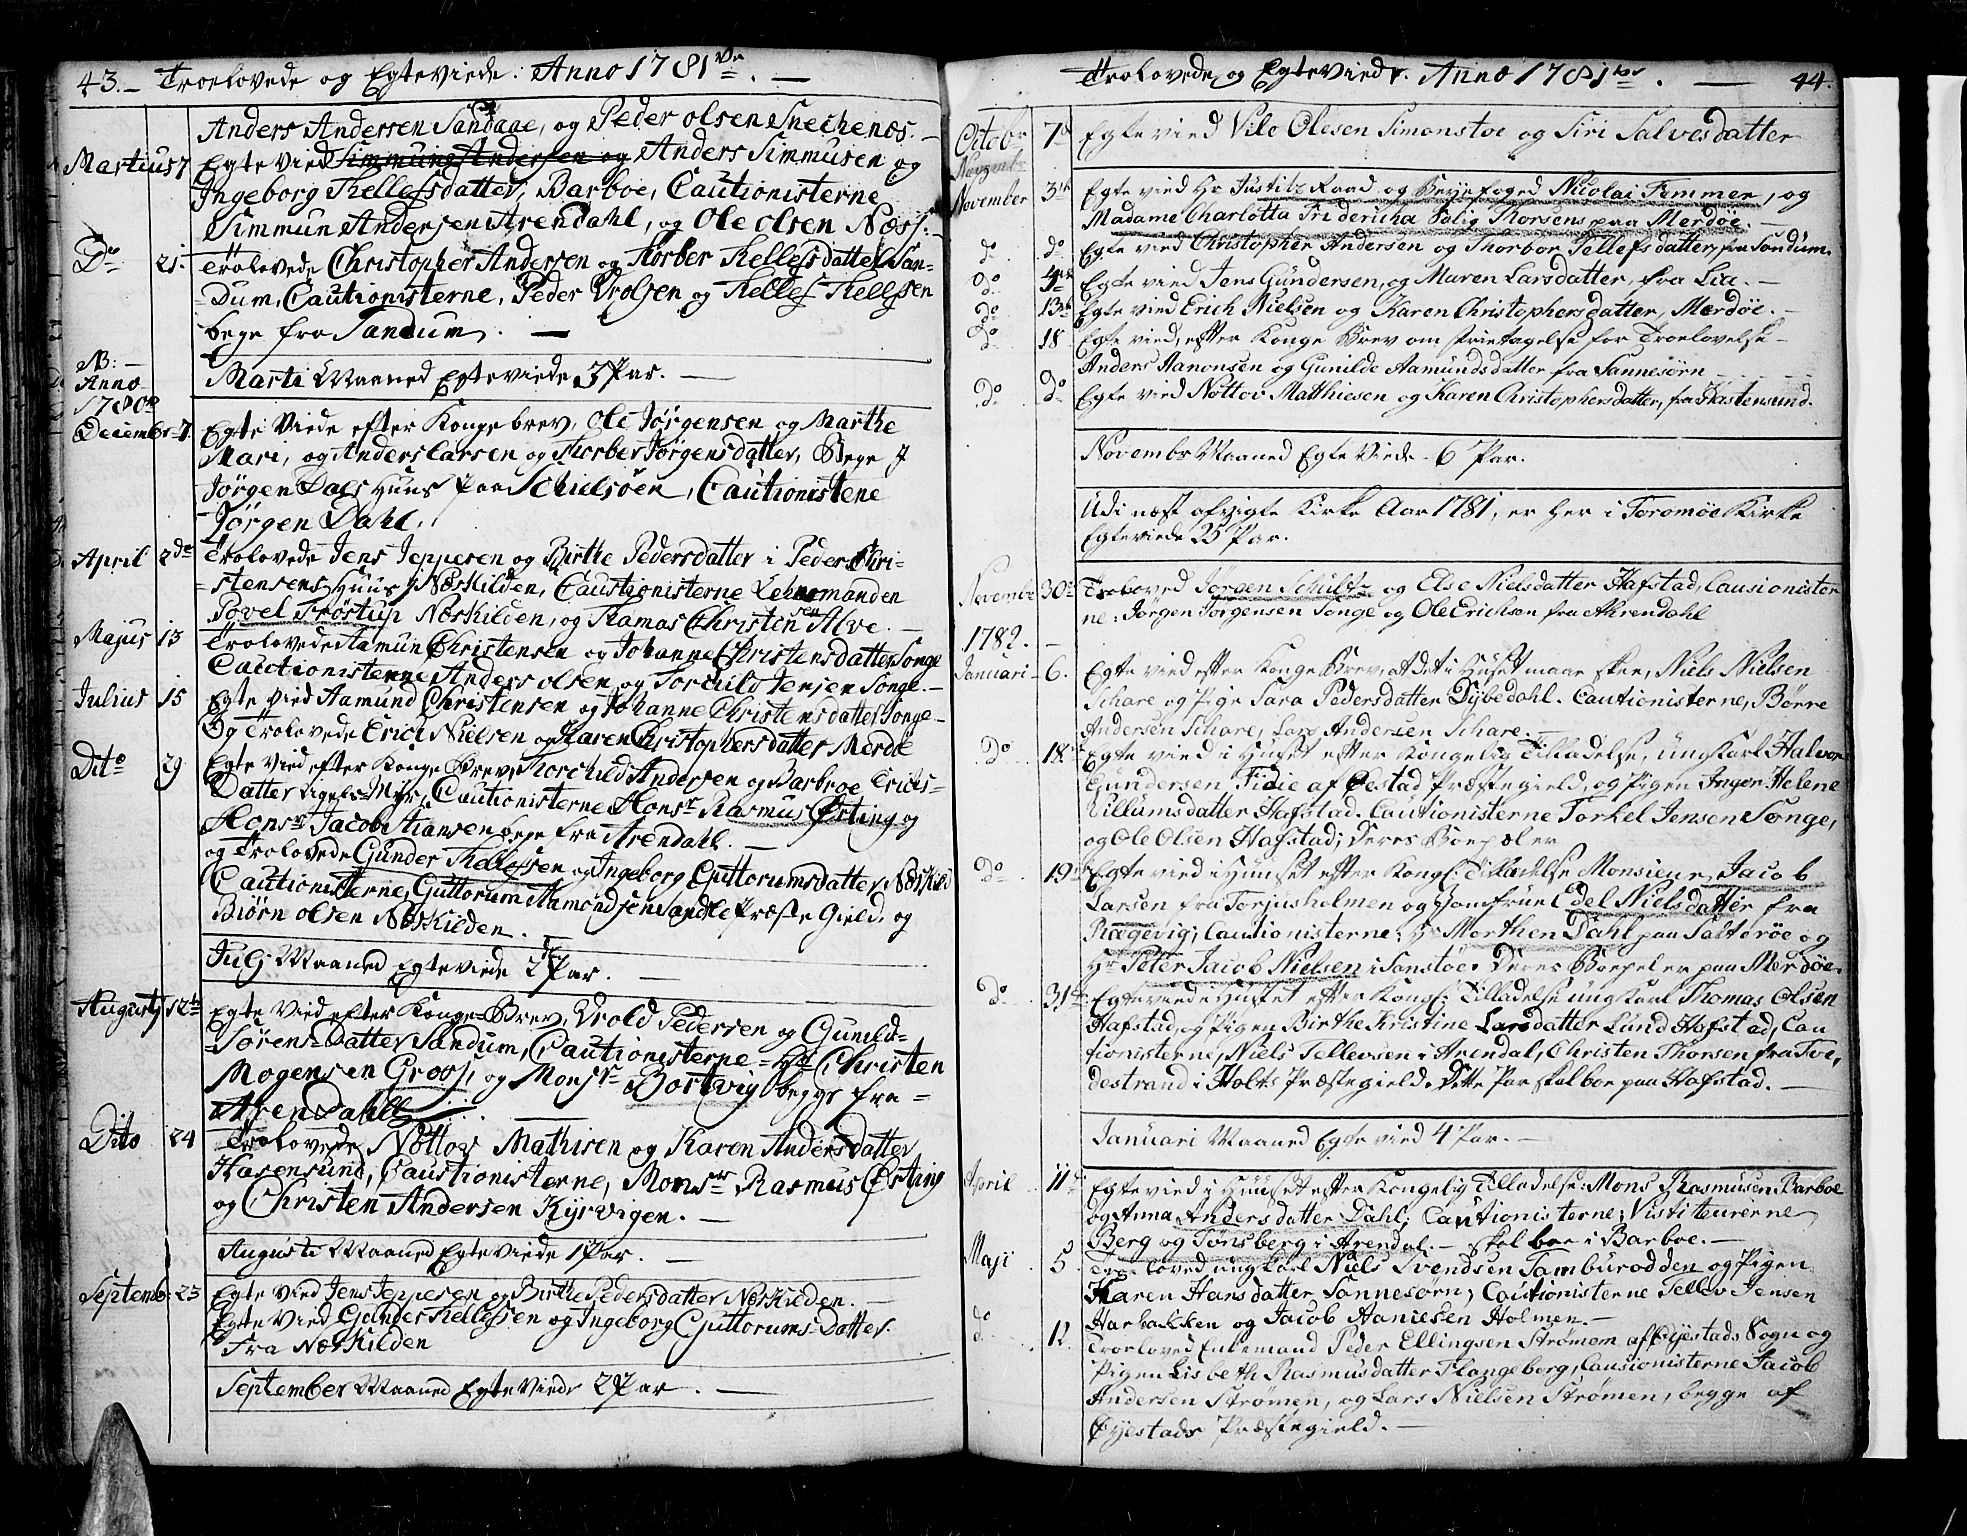 43. — Troelovede og Egteviede. Anno 1781 —
Anders Andersen Sandaae, og Peder olsen Snechenæs. —
Martius 7 Egte Vied Simmun Andersen og Anders Simmusen og
Ingeborg Kellefsdatter, Barboe, Cautionisterne
Simmun Andersen Arendahl, og Ole olsen Næss: —
Do 21. Trolovede Christopher Andersen og Torber Kellefsdatter San-
Dum, Cautionisterne, Peder Vrolsen og Kellef Kellefsen
bege fra Sandum. —
NB: —
Anno
1780
Marti Maaned Egteviede 3 Par. —
Decembr 7 Egte Viede efter Konge brev, Ole Jørgensen og Marthe
Mari, og Anders Larsen og Thorber Jørgensdatter, Bege I
Jørgen Dals Huus Paa Schielsöen, Cautionistene
Jørgen Dahl.
April 2de Trolovede Jens Jeppesen og Birthe Pedersdatter i Peder Chri-
stensens Huus Næskilden, Caustionisterne Lehnsmanden
Povel Trøstup Næskilden, og Thamas Christensen Alve. —
Majus 13 Trolovede Aamun Christensen og Johanne Christensdatter Songe
Cautionisterne Anders olsen og Torchild Jensen Songe. —
Julius 15 Egte Vied Aamund Christensen og Johanne Christensdatter Songe —
Og Trolovede Erich Nielsen og Karen Christophersdatter Merdøe
Dito 29 Egte Vied efter Konge Brev Torchild Andersen og Barbroe Erichs-
Datter Myr, Cautionisterne Monsr Rasmus Ørsting og
Monsr Jacob bege fra Arendahl. —
og Trolovede Gunder Kellefsen og Ingeborg Guttorumsdatter Næskild
Cautionisterne Guttorum Aamondsen Sandke Præste Gield, og
Biørn olsen Næskilden. —
Julj Maaned Egteviede 2 Par. —
Augusty 12te Egte Vied efter Konge Brev, Vrold Pedersen og Gunild
Sørens Datter Sandum, Cautionisterne Hr Christen
Mogensen Groos, og Monsr Bortvig begge fra
ArenDahll
Dito 24 Trolovede Nottov Mathisen og Karen Andersdatter
Hasensund, Caustionisterne, Monsr Rasmus Ørsting
og Christen Andersen Kyrvigen. —
Augusti Maaned Egteviede 1 Par. —
Septembr 23 Egte Vied Jens Jeppesen og Birthe Pedersdatter Næskilden. —
Egte Vied Gunder Kellefsen og Ingeborg Guttorums Datter.
Fra Næskilden
September Maaned Egte Viede 2 Par. —
Trolovede og Egteviede. Anno 1781 — 44.
Octobr 7de Egte vied Vilo Olesen Simonstoe og Siri Salvesdatter
Novembr
November 3die Egte vied Hr Justitz Raad og Byefoged Nicolai Femmer, og
Madame Charlotta Fridericha Salig Thorsens paa Merdöe.
do do Egte vied Christopher Andersen og Thorbor Tellefsdatter, fra Sandum.
do 4de Egte vied Jens Gundersen, og Maren Larsdatter, fra Lia. —
do 13de Egte vied Erich Nielsen og Karen Christophersdatter, Merdöe. —
do 18 Egte vied, efter Konge Brev om fritagelse for Troelovelse —
Anders Aanonsen og Gunilde Aamundsdatter fra Sannesörn
do do Egte vied Nottov Matthiesen og Karen Christophersdatter, fra Hastensund.
Novembr Maaned Egte Viede 6 Par.
Udi næst afvigte Kirke Aar 1781, er her i Tromöe Kirke
Egteviede 25 Par.
Novembr 30te Troloved Jørgen Schultz og Else Nielsdatter Hafstad, Causionister
ne: Jørgen Jørgensen Songe og Ole Erichsen fra Ahrendahl
1782. —
Januari 6. Egte vied efter Konge Brev, at det i Huset maae skee, Niels Nielsen
Schare og Pige Sara Pedersdatter Dybedahl. Cautionisterne, Børre
Andersen Schare, Lars Andersen Schare. —
Do 18 Egte vied i Huuset efter Kongelig Tilladelse, ungkarl Halvor
Gundersen Fidie af Øestad Præstegield, og Pigen Inger Helene
Villumsdatter Hafstad. Cautionisterne Torkel Jensen Songe,
og Ole Olsen Hafstad; Deres Boepæl er
do 19 Egte vied i Huuset efter Kongl: Tilladelse Monsieur, Jacob
Larsen fra Torjusholmen og Jomfrue Edel Nielsdatter fra
Rægevig; Cautionisterne: Hr Morthen Dahl paa Salterøe og
Hr Peter Jacob Nielsen i Sanstøe. Deres Boepel er paa Merdöe.
Do 31te Egteviede i Huset efter Kongl: Tilladelse ungkarl Thomas Olsen
Hafstad, og Pigen Birthe Kristine Larsdatter Lund Hafstad, Cau
tionisterne, Niels Tellevsen i Arendal, Christen Thorsen fra Tve,
destrand i Holts Præstegield. Dette Par skal boe paa Hafstad. —
Januari Maaned Egte vied 4 Par. —
April 11te Egte vied i Huuset efter Kongelig Tilladelse: Mons Rasmusen Barboe
og Anna Andersdatter Dahl; Cautionisterne; Visiteurerne
Berg og Tønsberg i Arendal. — skal boe i Barboe. —
Maji 5. Troeloved ungkarl Niels Svendsen Tamburodden og Pigen
Karen Hansdatter Sannesörn; Cautionisterne Tellev Jensen
Harbakken og Jacob Haniesen Holmen. —
do 12. Troeloved Enkemand Peder Ellingsen Strømøm af Øyestads Sogn og
Pigen Lisbeth Rasmusdatter Flangeborg, Causionisterne Jacob
Andersen Strømen, og Lars Nielsen Strømen, begge af
Øyestads Præstegield. —